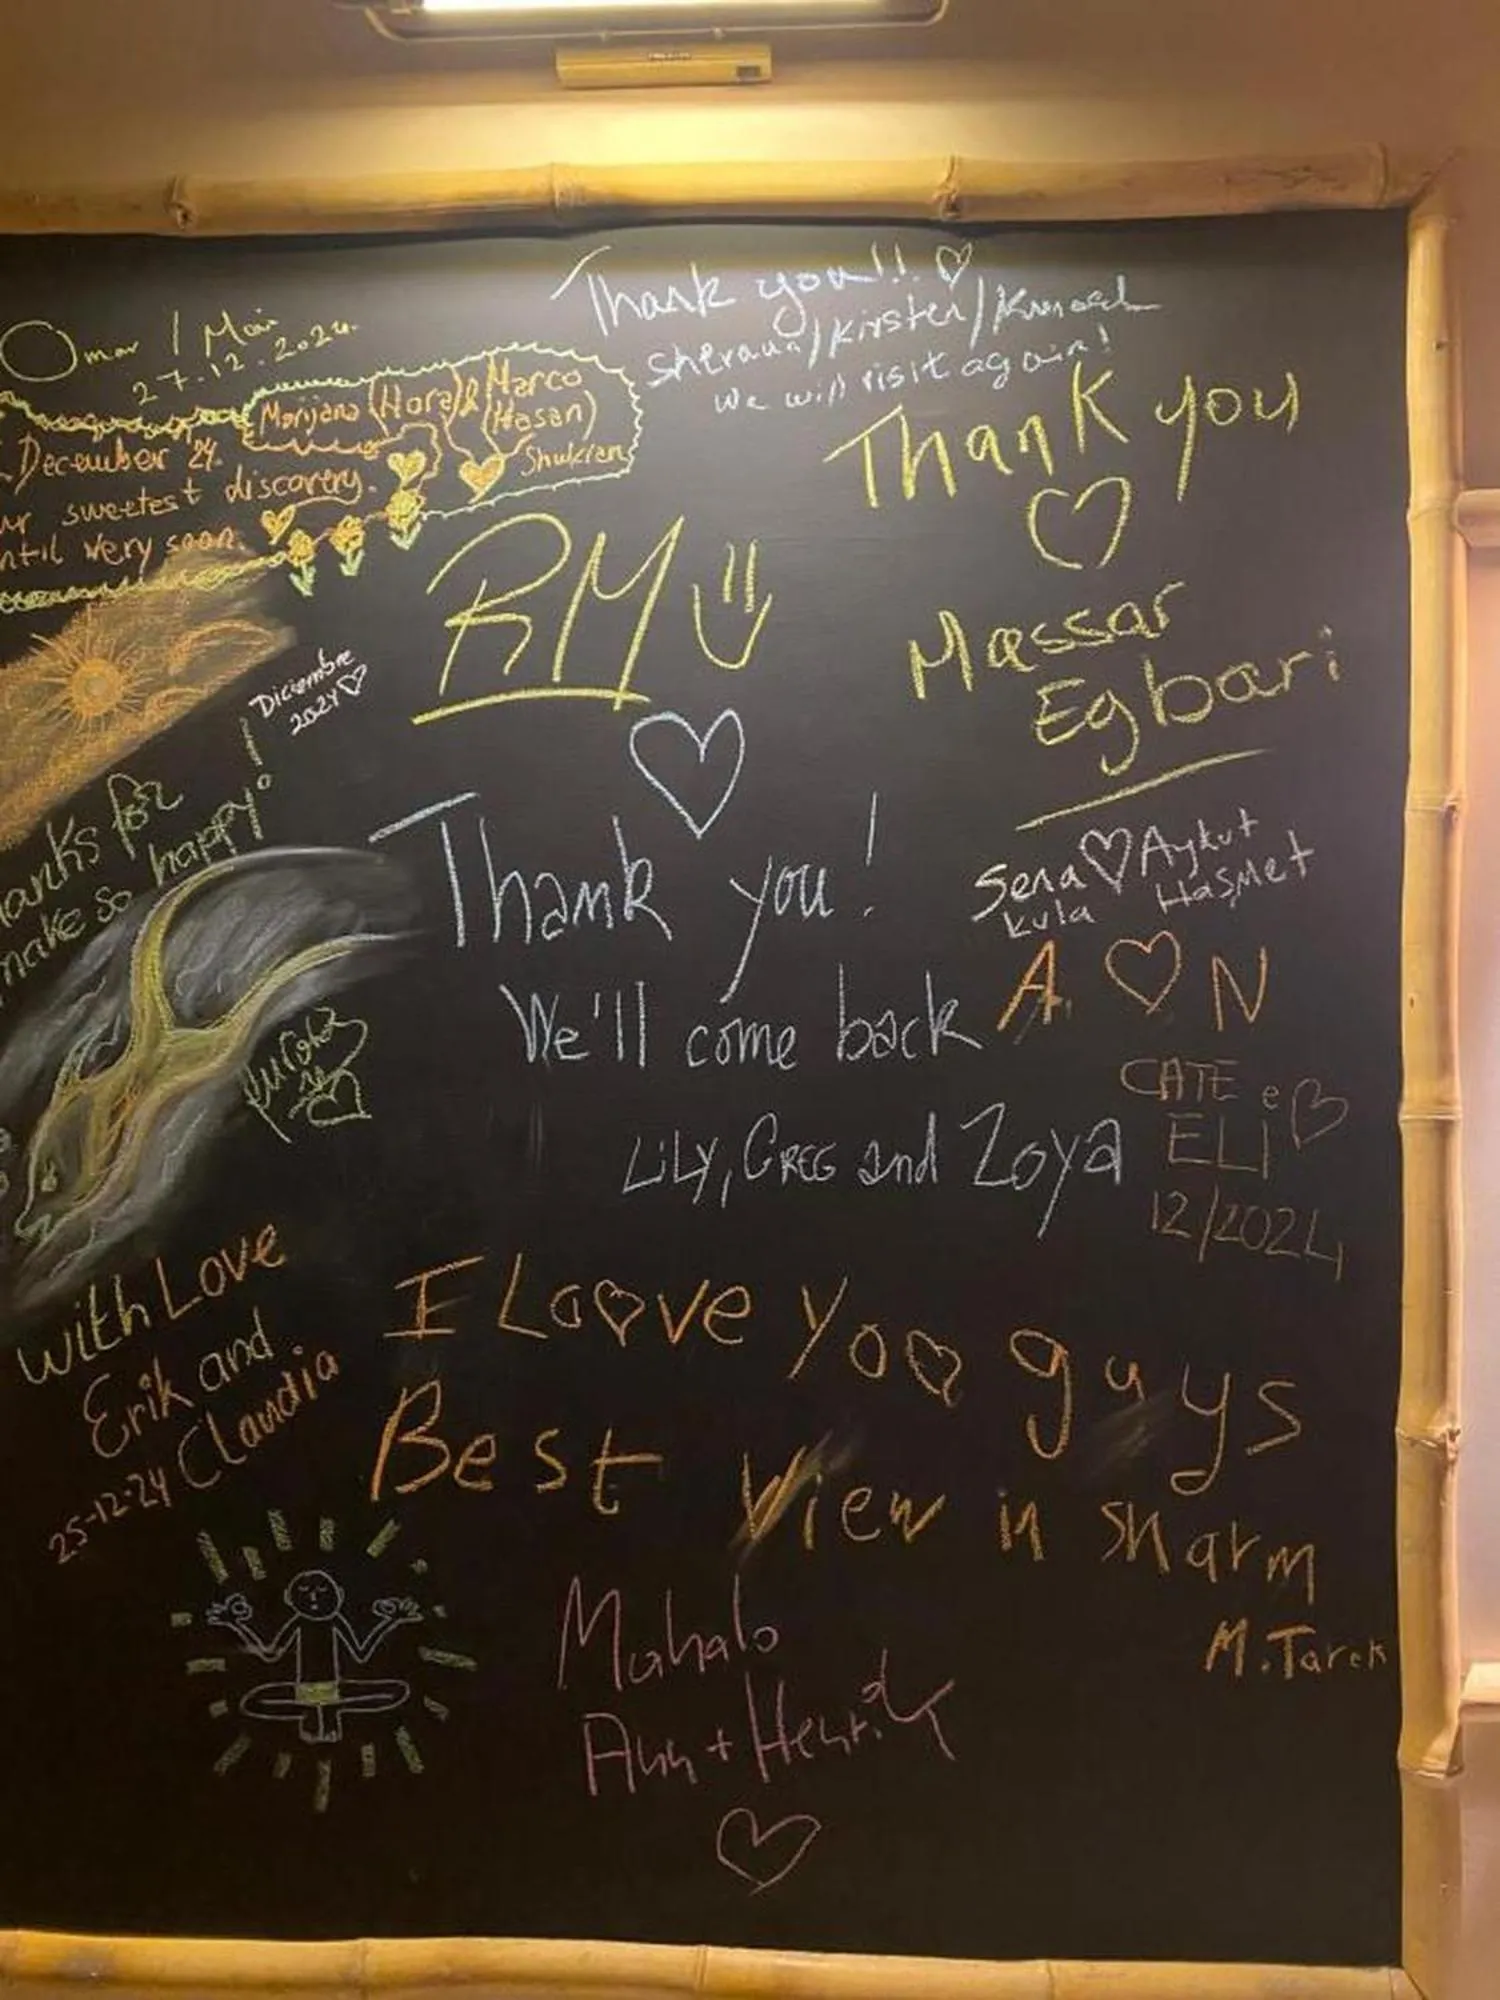 Thank you!!
Kirsten/
We will visit again!
Omar / Mai
27.12.2024
Marijana (Hora) & Marco
(Hasan)
Shukran
December 24.
sweetest discovery.
until very soon.
Thank you
Massar
Egbari
RM
Diciembre
2024
thanks for
make so happy!
Thank you!
We'll come back
LiLY, GREG and Zoya
Sena Aykut
Kula Hasmet
A. N
CATE e
ELI
12/2024
With Love
Erik and
Claudia
25-12-24
I Loove you guys
Best view in sharm
M.Tarek
Mahalo
Ann + Henrik